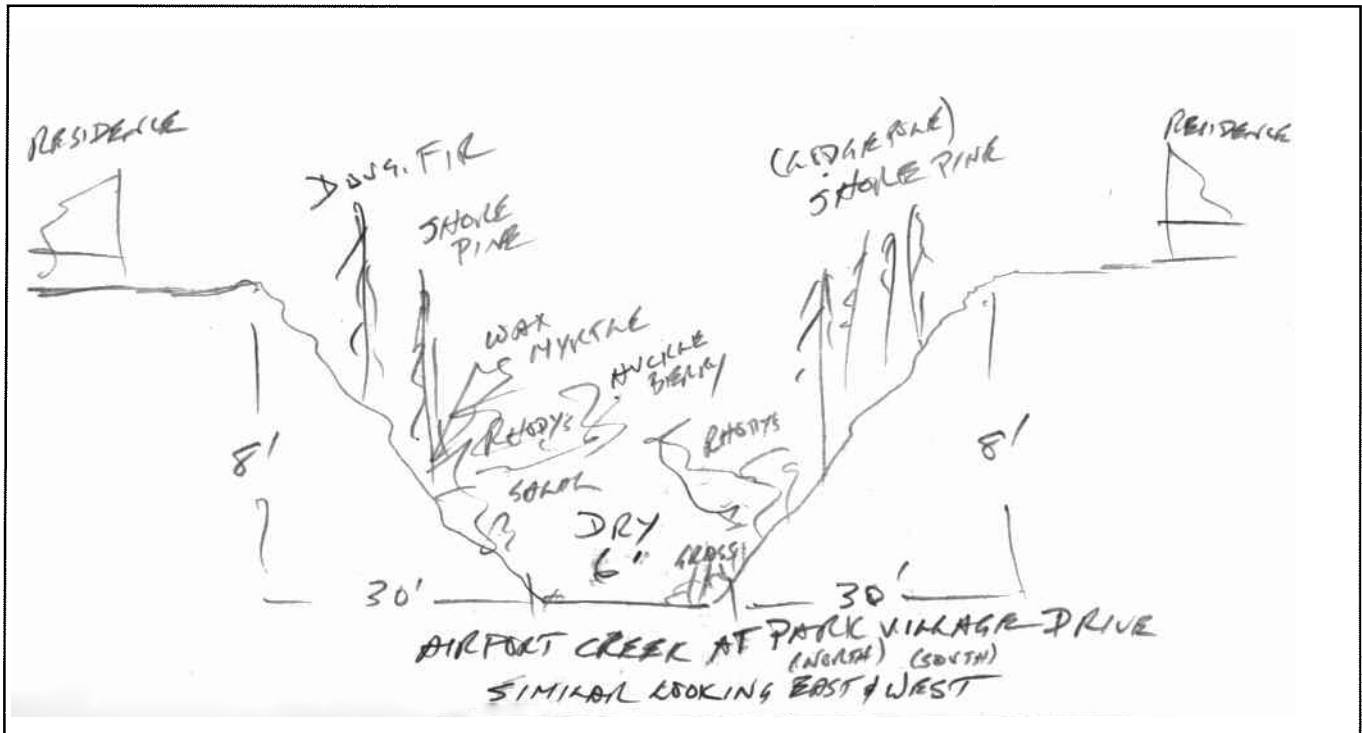 RESIDENCE
DOUG. FIR
SHORE
PINE
(LODGEPOLE)
SHORE PINE
RESIDENCE
WAX
MYRTLE
HUCKLE
BERRY
RHODYS
RHODYS
SALAL
8'
8'
DRY
6"
GRASS
30'
30'
AIRPORT CREEK AT PARK VILLAGE DRIVE
(NORTH) (SOUTH)
SIMILAR LOOKING EAST & WEST